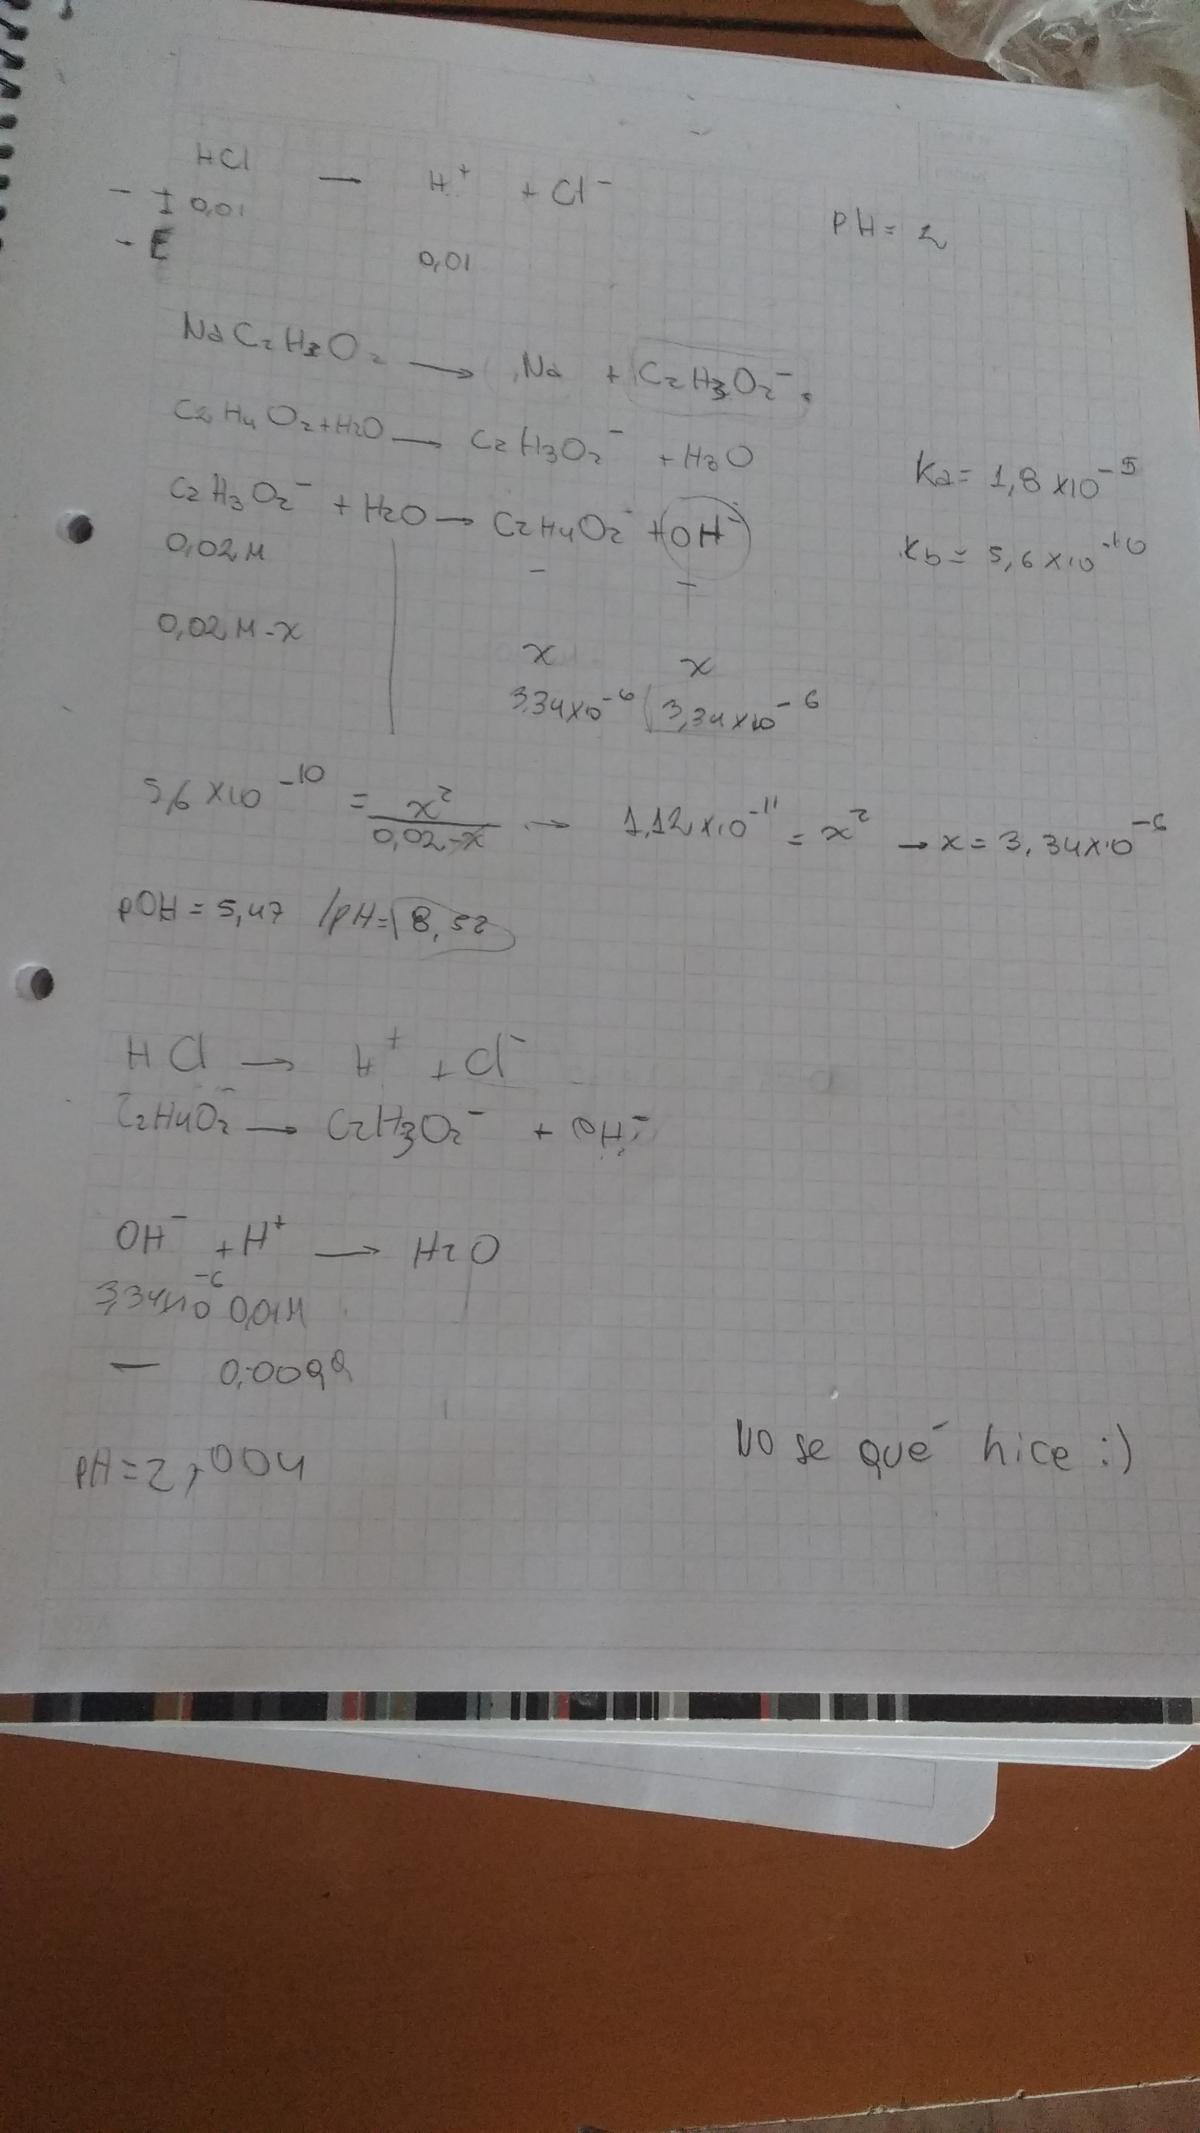 HCl — H⁺ + Cl⁻
- I 0,01
PH = 2
- E 0,01
NaC₂H₃O₂ → Na + C₂H₃O₂⁻
C₂H₄O₂+H₂O → C₂H₃O₂⁻ + H₃O
Ka = 1,8 x10⁻⁵
C₂H₃O₂⁻ + H₂O → C₂H₄O₂⁻ + OH⁻
Kb = 5,6 x10⁻¹⁰
0,02M - -
0,02M-x x x
3,34x10⁻⁶ 3,34x10⁻⁶
5,6 x10⁻¹⁰ = x²/0,02-x → 1,12x10⁻¹¹ = x² → x = 3,34x10⁻⁶
pOH = 5,47 / pH = 8,52
HCl → H⁺ + Cl⁻
C₂H₄O₂⁻ → C₂H₃O₂⁻ + OH⁻
OH⁻ + H⁺ → H₂O
3,34x10⁻⁶ 0,01M
— 0,0099
pH = 2,004
No se qué hice :)